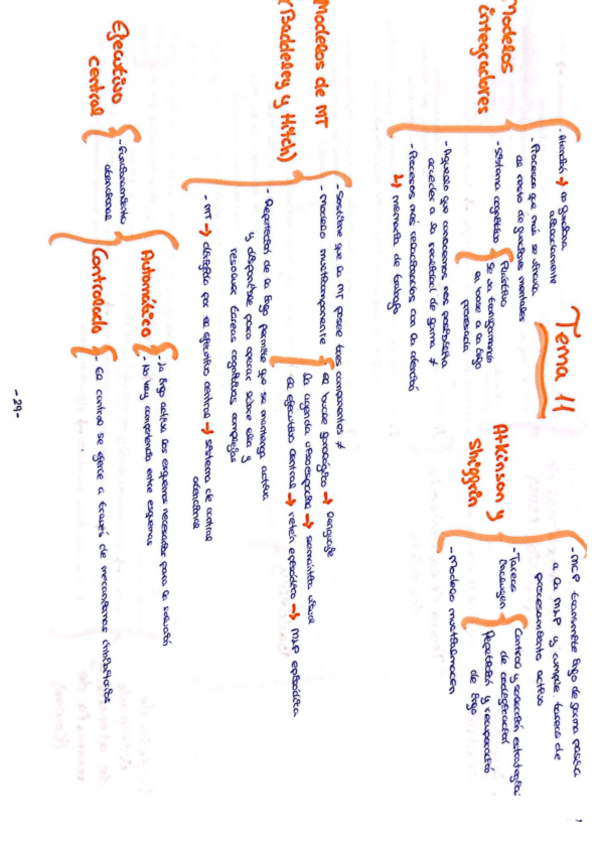 Tema 11
Modelos
integradores
- Atención → no funciona
aisladamente
- Procesos que más se vincula
al resto de funciones mentales
- Sistema cognitivo
Plástico
Se va transformando
en base a la info
procesada
- Aquello que conocemos nos posibilita
acceder a la realidad de forma ≠
- Procesos más relacionados con la atención
↳ memoria de trabajo
Atkinson y
Shiffrin
- MCP transmite info de forma pasiva
a la MLP y cumple tareas de
procesamiento activo
- Tareas
incluyen
Control y selección estrategia
de codificación
Repetición y recuperación
de info
- Modelo multialmacén
Modelos de MT
(Baddeley y Hitch)
- Sostiene que la MT posee tres componentes ≠
- Modelo multicomponente
el bucle fonológico → lenguaje
la agenda visoespacial → semántica visual
el ejecutivo central → retén episódico → MLP episódica
- Repetición de la info permite que se mantenga activa
y disponible para operar sobre ella y
resolver tareas cognitivas complejas
- MT → dirigida por el ejecutivo central → sistema de control
atencional
Ejecutivo
central
- Funcionamiento
atencional
Automático
- la info activa los esquemas necesarios para la solución
- No hay competencia entre esquemas
Controlado
- el control se ejerce a través de mecanismos inhibitorios
-29-